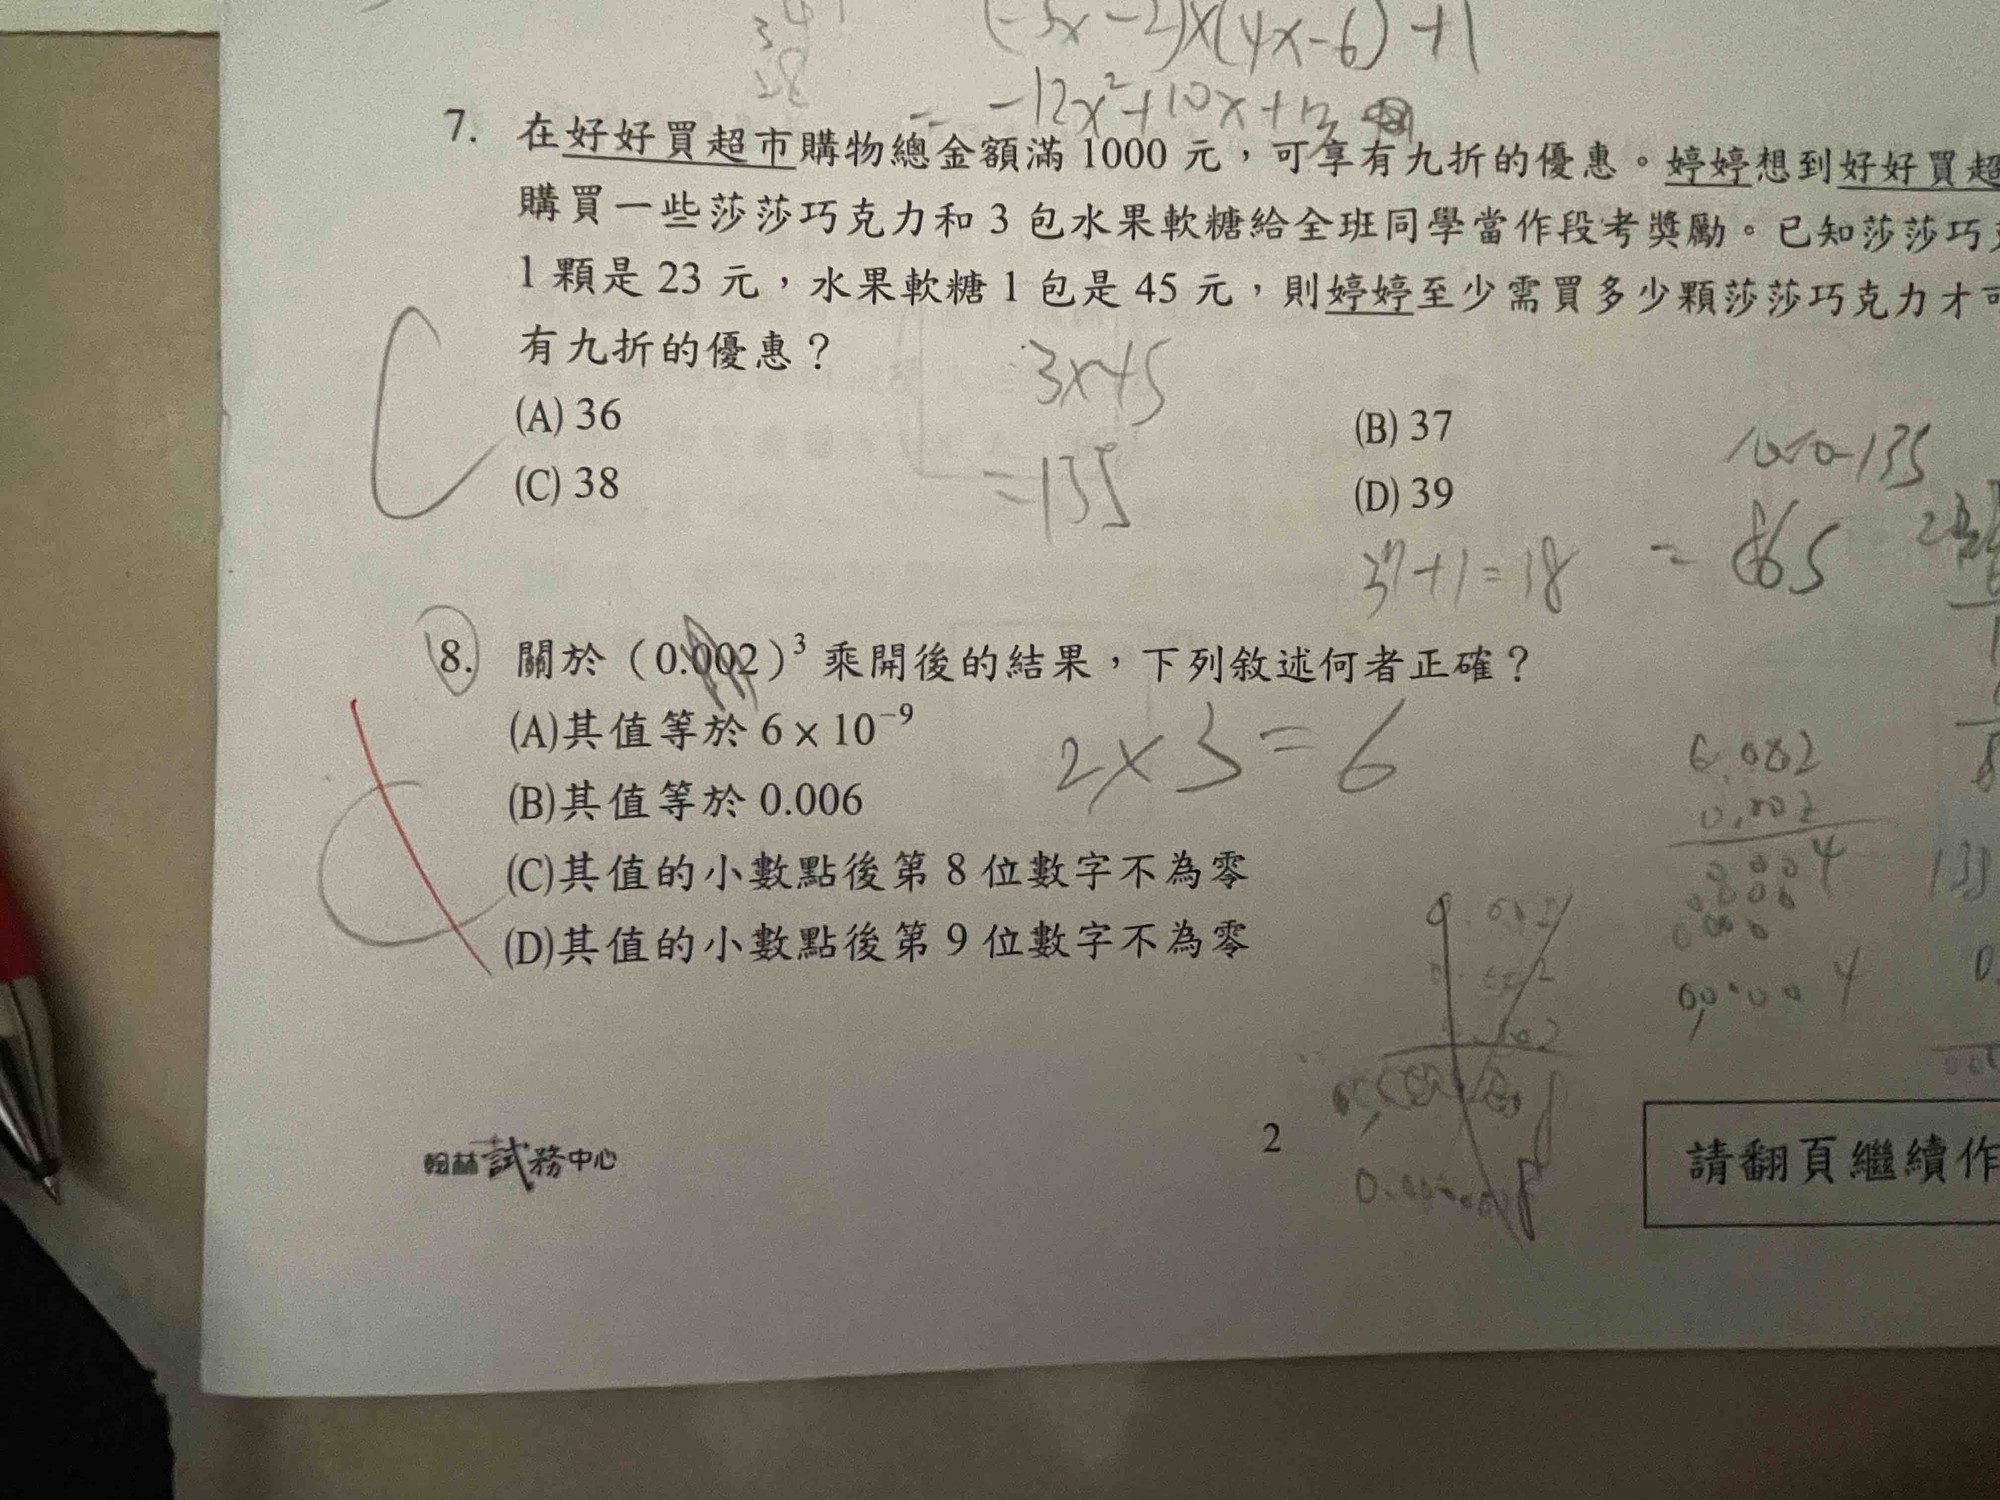 34
28
(-3x-2)x(4x-6)+1
= -12x²+10x+13
7. 在好好買超市購物總金額滿 1000 元，可享有九折的優惠。婷婷想到好好買超
購買一些莎莎巧克力和 3 包水果軟糖給全班同學當作段考獎勵。已知莎莎巧
1 顆是 23 元，水果軟糖 1 包是 45 元，則婷婷至少需買多少顆莎莎巧克力才可
有九折的優惠？
C
3x45
=135
(A) 36
(B) 37
(C) 38
(D) 39
1000-135
=865
37+1=38
8. 關於（0.002）³ 乘開後的結果，下列敘述何者正確？
(A)其值等於 6 × 10⁻⁹
2x3=6
(B)其值等於 0.006
(C)其值的小數點後第 8 位數字不為零
(D)其值的小數點後第 9 位數字不為零
C
0.002
翰林試務中心
2
請翻頁繼續作